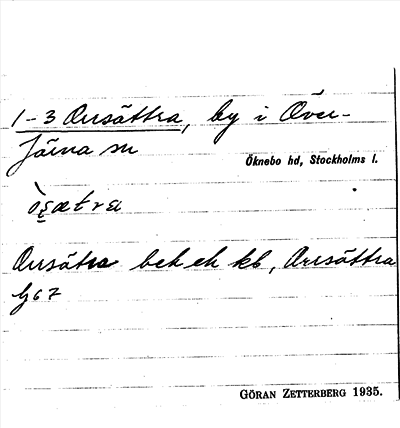 1-3 Orrsättra, by i Över-
Järna sn
Öknebo hd, Stockholms l.
Orrsätra bek ek kb, Orrsättra
GÖRAN ZETTERBERG 1935.